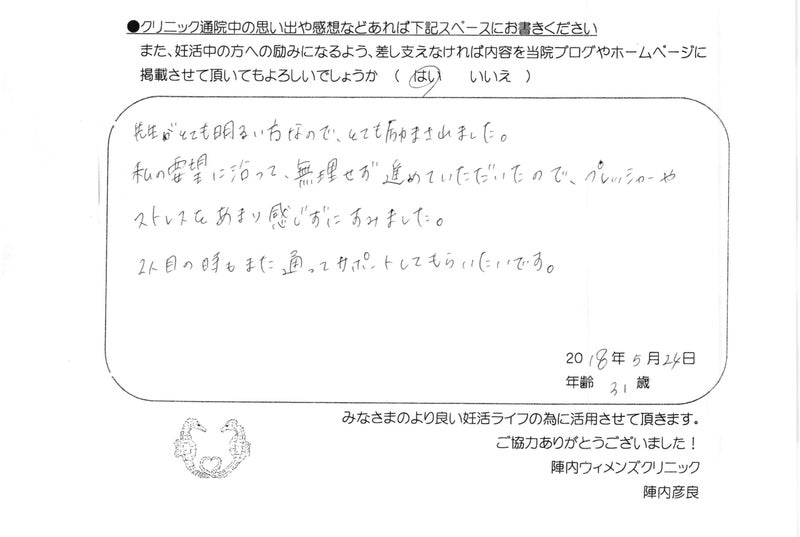 ●クリニック通院中の思い出や感想などあれば下記スペースにお書きください
また、妊活中の方への励みになるよう、差し支えなければ内容を当院ブログやホームページに
掲載させて頂いてもよろしいでしょうか （ はい　いいえ ）
先生がとても明るい方なので、とても励まされました。
私の要望に沿って、無理せず進めていただいたので、プレッシャーや
ストレスをあまり感じずにすみました。
2人目の時もまた通ってサポートしてもらいたいです。
2018年5月24日
年齢 31歳
みなさまのより良い妊活ライフの為に活用させて頂きます。
ご協力ありがとうございました！
陣内ウィメンズクリニック
陣内彦良